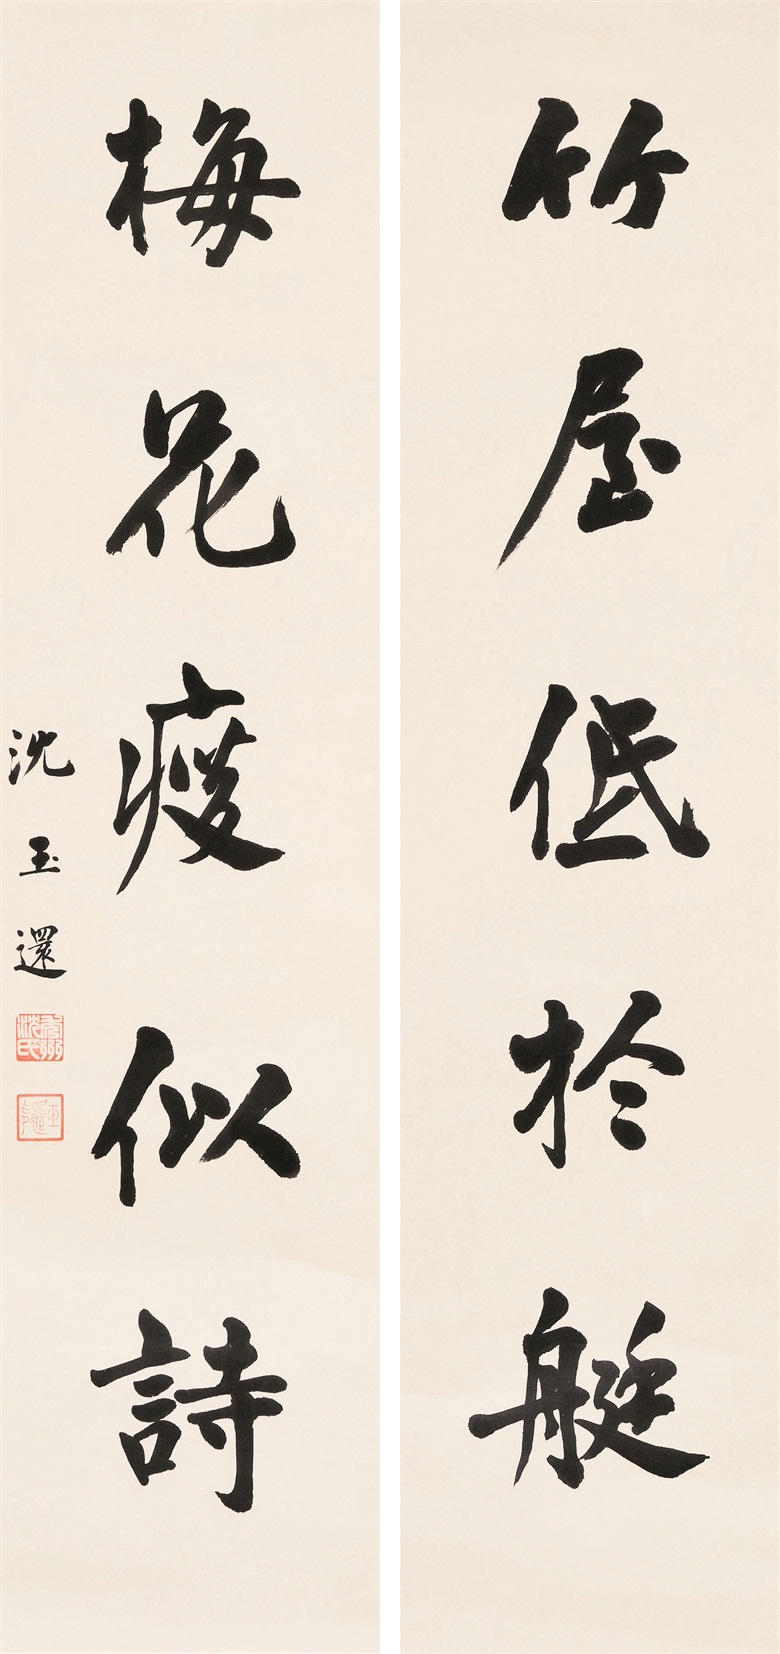 竹屋低於艇
梅花瘦似詩
沈玉還